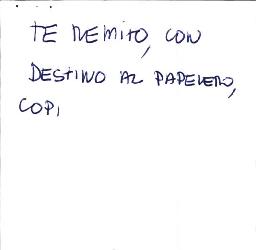 TE REMITO, CON
DESTINO AL PAPELERO,
COPI